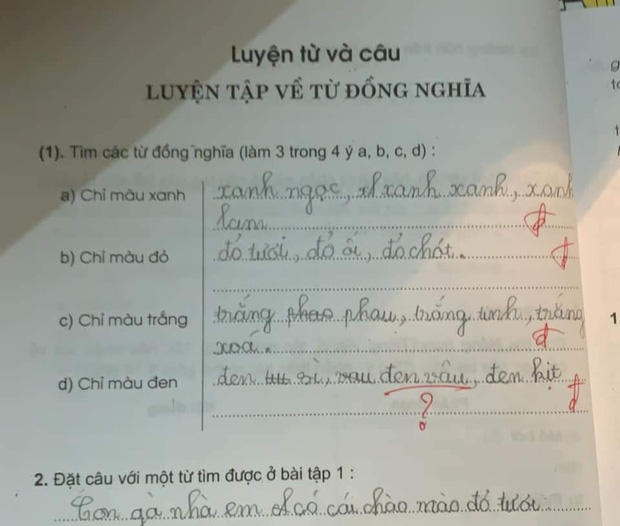 Luyện từ và câu
LUYỆN TẬP VỀ TỪ ĐỒNG NGHĨA
(1). Tìm các từ đồng nghĩa (làm 3 trong 4 ý a, b, c, d) :
a) Chỉ màu xanh
xanh ngọc, xanh xanh, xanh
lam
đ
b) Chỉ màu đỏ
đỏ tươi, đỏ ối, đỏ chót.
đ
c) Chỉ màu trắng
trắng phau, trắng tinh, trắng
xoá.
đ
d) Chỉ màu đen
đen sì, đen vâu, đen kịt
?
đ
2. Đặt câu với một từ tìm được ở bài tập 1 :
Con gà nhà em có cái chào mào đỏ tươi
1